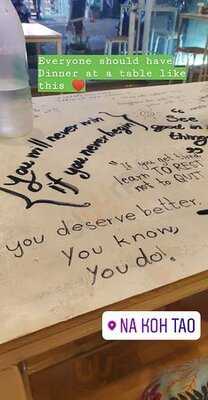 Everyone should have
Dinner at a table like
this ❤️
You will never win
if you never begin
" See
good in
things
"If you get tired,
learn TO REST
not to QUIT
you deserve better.
you know,
you do!.
NA KOH TAO